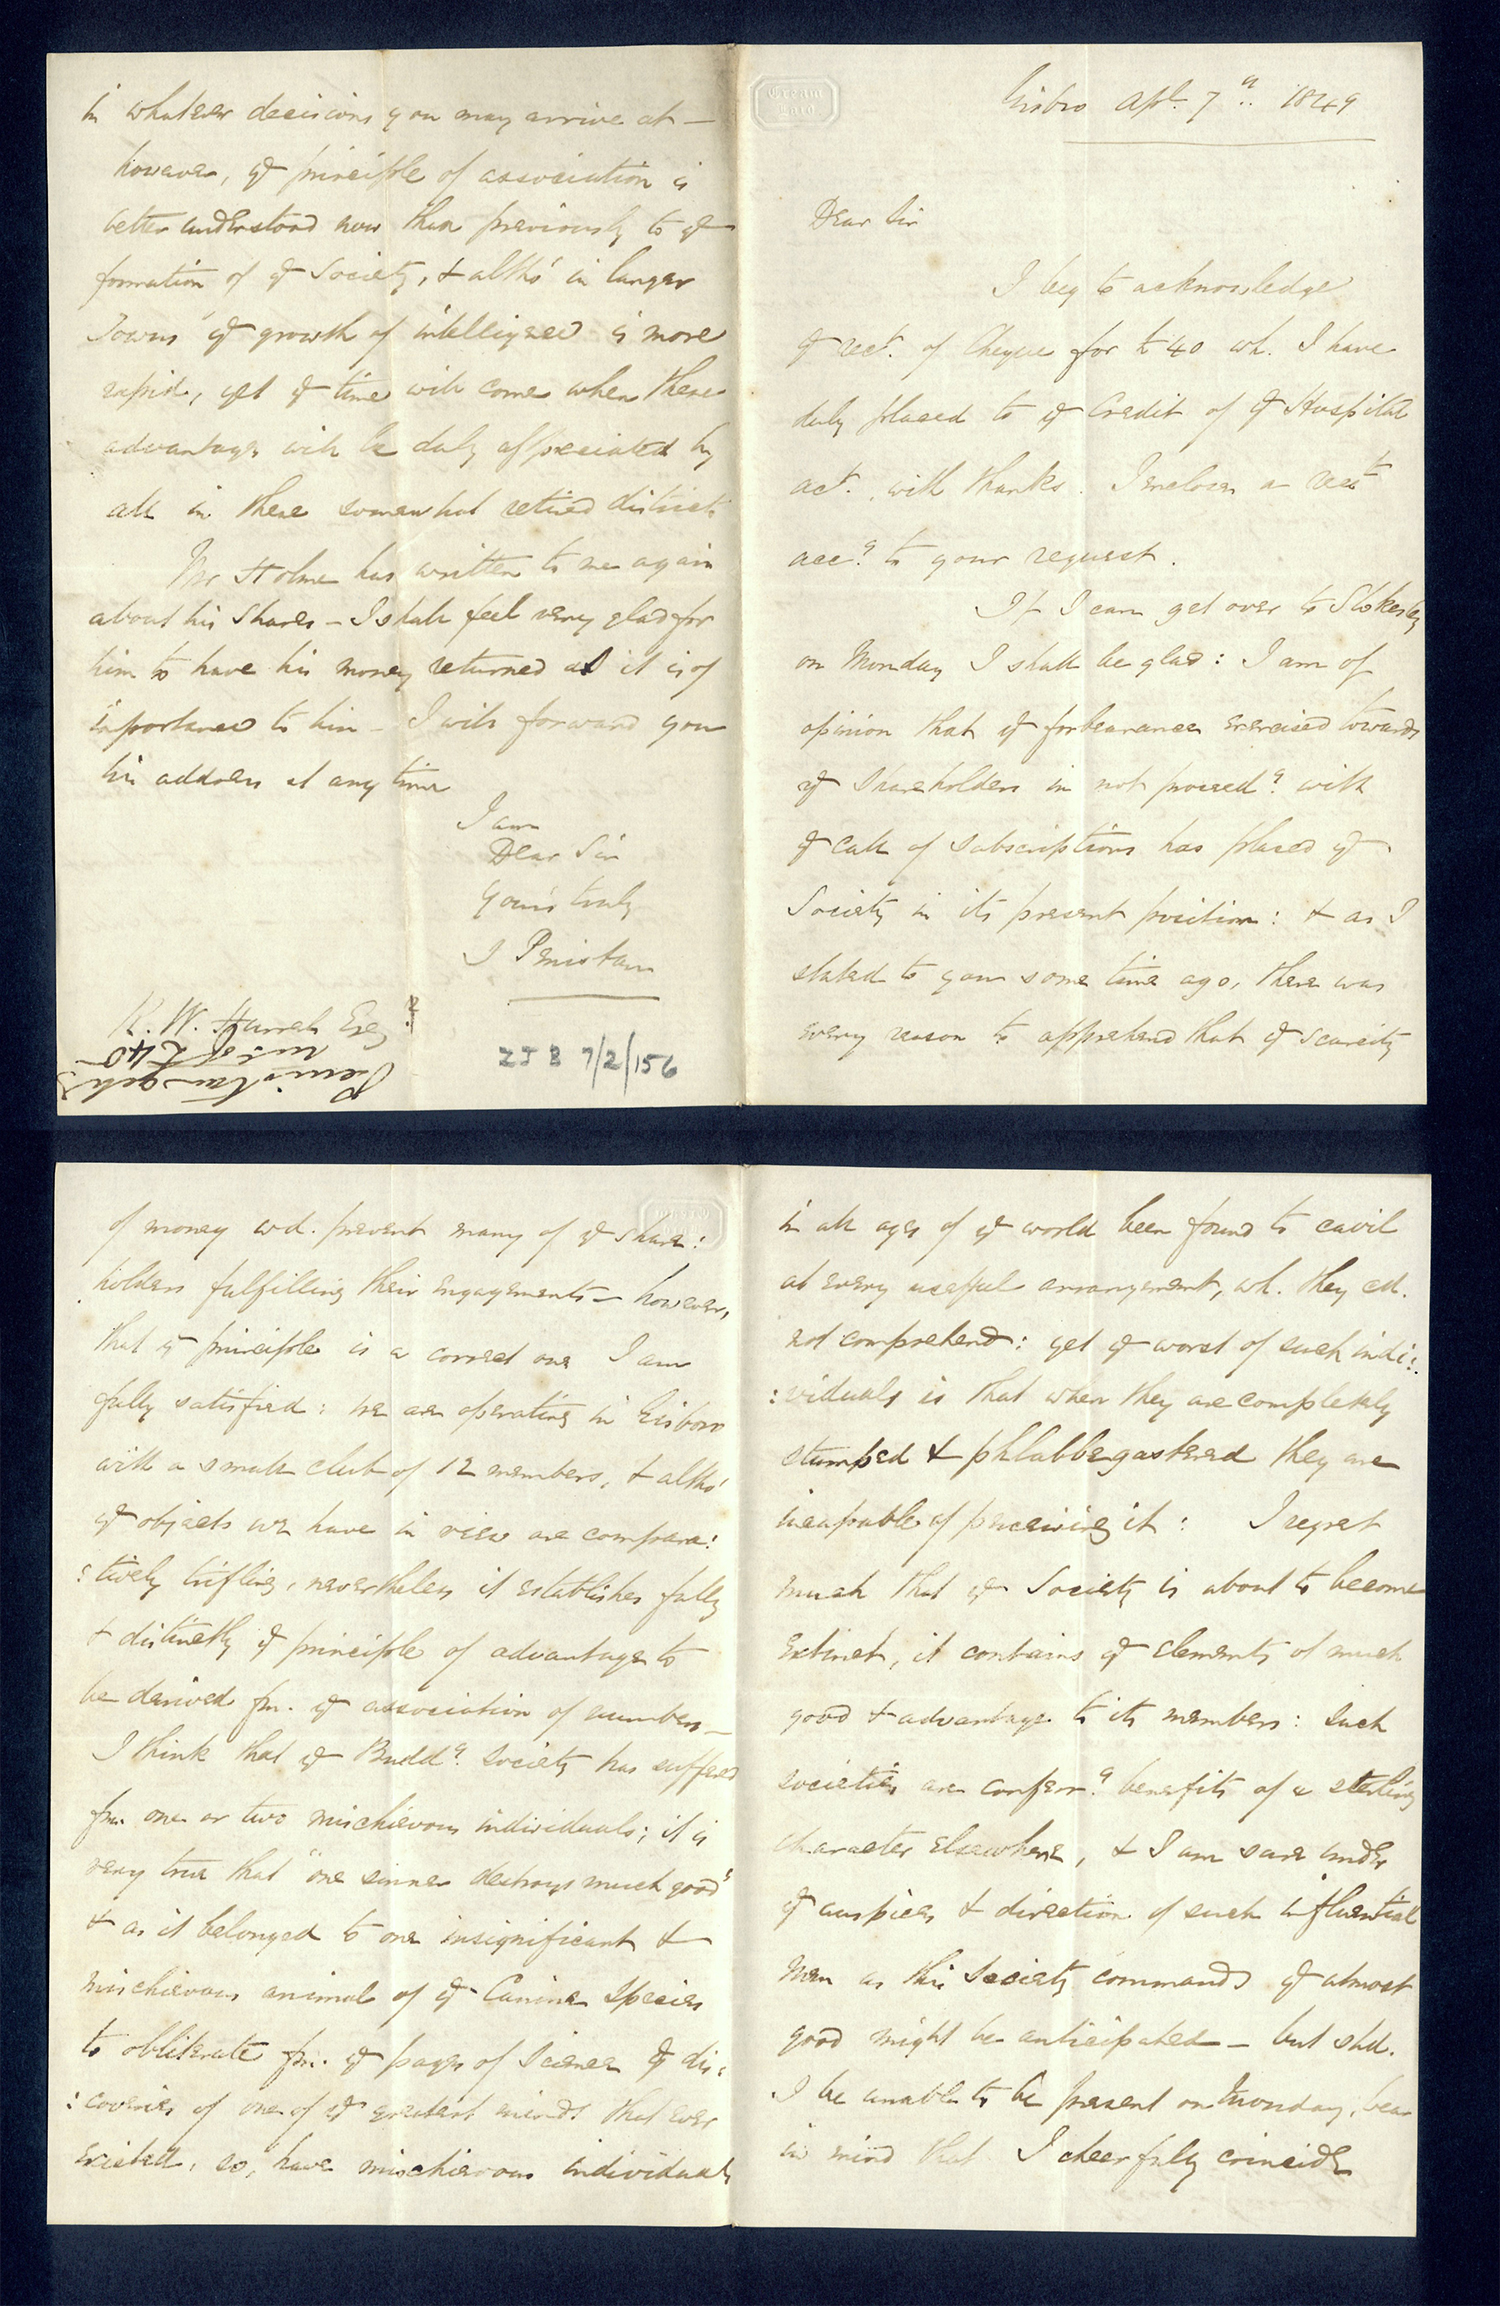 Cream
Laid
Gisbro Apl. 7th. 1849
Dear Sir
I beg to acknowledge
ye rect. of Cheque for £40 wh. I have
duly placed to ye Credit of ye Hospital
act. with thanks. I enclose a rect
accg to your request.
If I can get over to Stokesley
on Monday I shall be glad: I am of
opinion that ye forbearance exercised towards
ye Shareholders in not proceedg with
ye call of subscriptions has placed ye
Society in its present position: & as I
stated to you some time ago, there was
every reason to apprehend that ye scarcity
of money wd. prevent many of ye share:
holders fulfilling their engagements – however,
that ye principle is a correct one I am
fully satisfied: we are operating in Gisboro
with a small club of 12 members, & altho'
ye objects we have in view are compara:
:tively trifling, nevertheless it establishes fully
& distinctly ye principle of advantage to
be derived fm. ye association of numbers –
I think that ye Buildg Society has suffered
fm. one or two mischievous individuals; it is
very true that "one sinner destroys much good"
& as it belonged to one insignificant &
mischievous animal of ye Canine Species
to obliterate fm. ye pages of Science ye dis:
:coveries of one of ye greatest minds that ever
existed, so, have mischievous individuals
in all ages of ye world been found to cavil
at every useful arrangement, wh. they cd.
not comprehend: yet ye worst of such indi:
:viduals is that when they are completely
stumped & phlabbegastered they are
incapable of perceiving it: I regret
much that ye Society is about to become
extinct, it contains ye elements of much
good & advantage to its members: such
societies are conferrg benefits of a sterling
character elsewhere, & I am sure under
ye auspices & direction of such influential
men as this Society commands ye utmost
good might be anticipated – but shd.
I be unable to be present on Monday, bear
in mind that I cheerfully coincide
in whatever decisions you may arrive at –
however, ye principle of association is
better understood now than previously to ye
formation of ye Society, & altho' in larger
Towns ye growth of intelligence is more
rapid, yet ye time will come when these
advantages will be duly appreciated by
all in these somewhat retired districts
Mr Holme has written to me again
about his Shares – I shall feel very glad for
him to have his money returned as it is of
importance to him – I will forward you
his address at any time
I am
Dear Sir
Yours truly
J Penistan
R. W. Hurrah Esqr
Penistan
rect of £40
ZJB 7/2/156